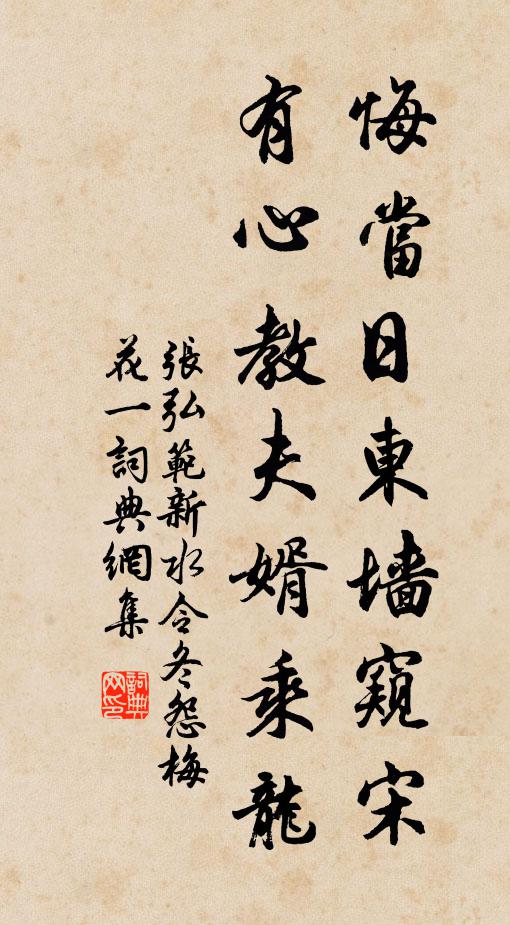 悔當日東墻窺宋
有心教夫婿乘龍
張弘範新水令冬怨梅
花一詞典網集
詞典網印